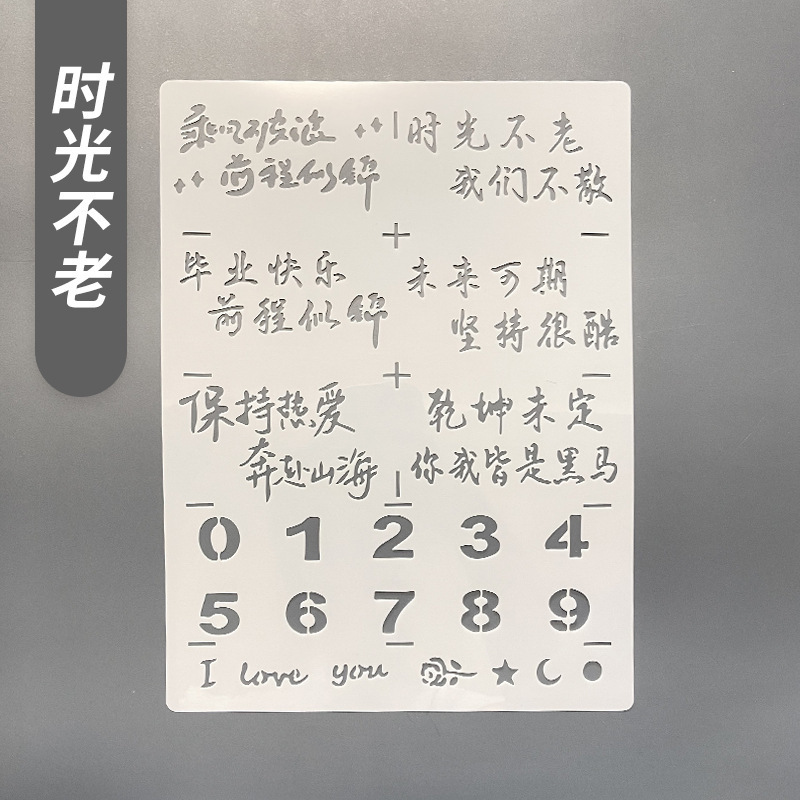 时光不老
乘风破浪
前程似锦
时光不老
我们不散
毕业快乐
前程似锦
未来可期
坚持很酷
保持热爱
奔赴山海
乾坤未定
你我皆是黑马
0 1 2 3 4
5 6 7 8 9
I love you